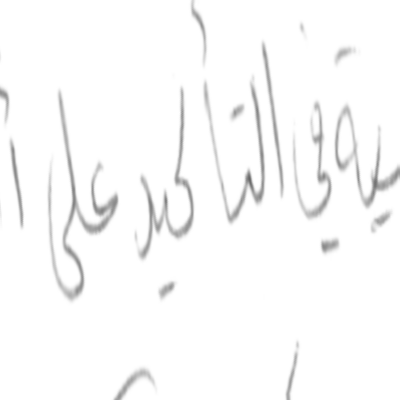 في التأكيد على